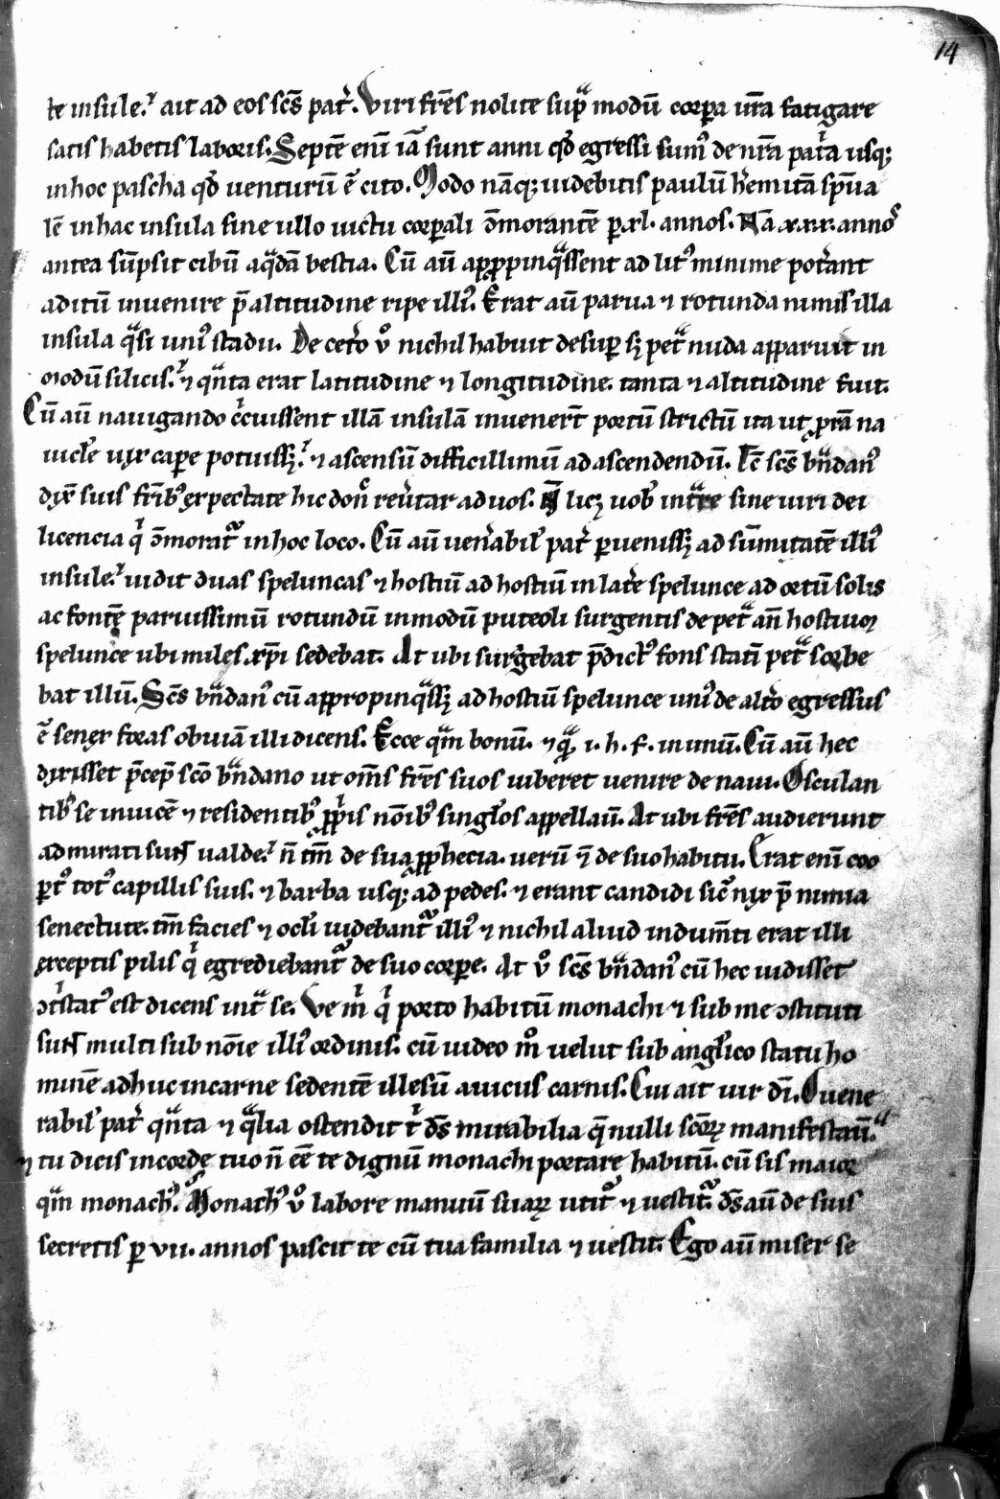 14
te insule. ait ad eos sc̄s pat̛. Viri fr̄es nolite sup̄ modū corꝑa ur̄a fatigare
satis habetis laboris. Septē eni̅ iā sunt anni qd̛ egressi sumꝰ de nr̄a pat̛a usq;
in hoc pascha qd̛ uenturū ē cito. Modo nāq; uidebitis paulū h̛emitā sp̄ua
lē in hac insula sine ullo uictu corꝑali ↄ̄morantē ꝑ.xl. annos. Nā xxx. annoˢ
antea sūpsit cibū aqᵃdā bestia. Cū aū aꝓpinqᵃssent ad litꝰ minime pot̛ant
aditū inuenire p̄ altitudine ripe illiꝰ. Erat aū parua ⁊ rotunda nimis illa
insula qᵃsi uniꝰ stadii. De cet̛o ů nichil habuit desuꝑ sꝫ petᵃ nuda apparuit in
modū silicis. ⁊ qᵃnta erat latitudine ⁊ longitudine. tanta ⁊ altitudine fuit.
Cū aū nauigando c̛cuissent illā insulā inuener̄t portū strictū ita ut ꝓrā na
uicl̛e uix caꝑe potuissꝫ. ⁊ ascensū difficillimū ad ascendendū. Tc̄ sc̄s bᵃndanꝰ
dix̄ suis fr̄ibꝰ expectate hic donc̛ reưtar ad uos. N̄ licꝫ uob̛ intᵃre sine uiri dei
licencia qⁱ ↄ̄moratᷣ in hoc loco. Cū aū uen̛abil̛ pat̛ ꝑuenissꝫ ad sūmitatē illiꝰ
insule. uidit duas speluncas ⁊ hostiū ad hostiū in lat̛e spelunce ad ortū solis
ac fontē paruissimū rotundū in modū puteoli surgentis de petᵃ an̄ hostiuꝫ
spelunce ubi miles xp̄i sedebat. At ubi surgebat p̄dictꝰ fons statī petᵃ sorbe
bat illū. Sc̄s bᵃndanꝰ cū appropinqᵃssꝫ ad hostiū spelunce uniꝰ de alt̛o egressus
ē senex foras obuiā illi dicens. Ecce qᵃm bonū. ⁊ qᵃ. i. h. f. in unū. Cū aū hec
dixisset p̄cep̄ sc̄o bᵃndano ut om̄s fr̄es suos iuberet uenire de naui. Osculan
tibꝰ se inuicē ⁊ residentibꝰ ꝓpⁱis noībꝰ singl̛os appellau̅. At ubi fr̄es audierunt
admirati sunt ualde. n̄ tm̄ de sua ꝓphecia. uerū ⁊ de suo habitu. Erat eni̅ coo
ꝑtꝰ totꝰ capillis suis. ⁊ barba usq; ad pedes. ⁊ erant candidi sic̛ nix p̄ nimia
senectute. tm̄ facies ⁊ ocl̛i uidebantᷣ illiꝰ ⁊ nichil aliud indum̄ti erat illi
exceptis pilis qⁱ egrediebantᷣ de suo corꝑe. At ů sc̄s bᵃndanꝰ cū hec uidisset
ↄt̛statꝰ est dicens intᵃ se. Ve mⁱ qⁱ porto habitū monachi ⁊ sub me ↄstituti
sunt multi sub noīe illiꝰ ordinis. cū uideo m̊ uelut sub angl̛ico statu ho
minē adhuc in carne sedentē illesū a uicus carnis. Cui ait uir dī. O uene
rabil̛ pat̛ qᵃnta ⁊ qᵃlia ostendit tⁱ ds̄ mirabilia q̄ nulli sc̄oꝝ manifestau̅.
⁊ tu dicis in corde tuo n̄ eē te dignū monachi portare habitū. cū sis maior
qᵃm monachꝰ. Monachꝰ ů labore manuū suaꝝ utitᷣ ⁊ uestitᷣ. ds̄ aū de suis
secretis ꝑ vii. annos pascit te cū tua familia ⁊ uestit. Ego aū miser se